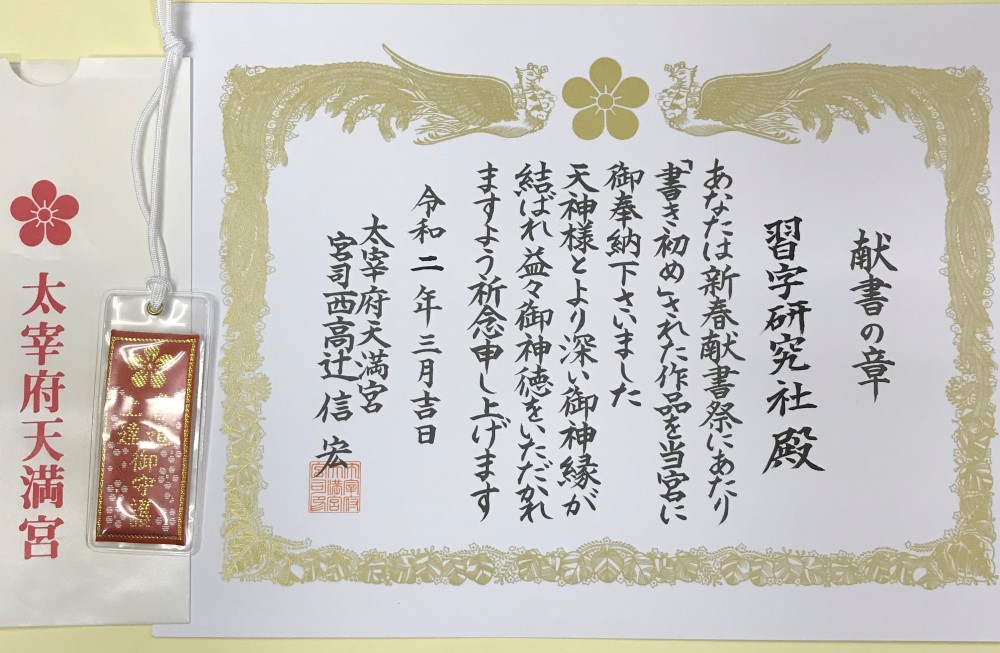 献書の章
習字研究社 殿
あなたは新春献書祭にあたり
「書き初め」された作品を当宮に
御奉納下さいました
天神様とより深い御神縁が
結ばれ益々御神徳をいただかれ
ますよう祈念申し上げます
令和二年三月吉日
太宰府天満宮
宮司西高辻信宏
上達御守護
太宰府天満宮